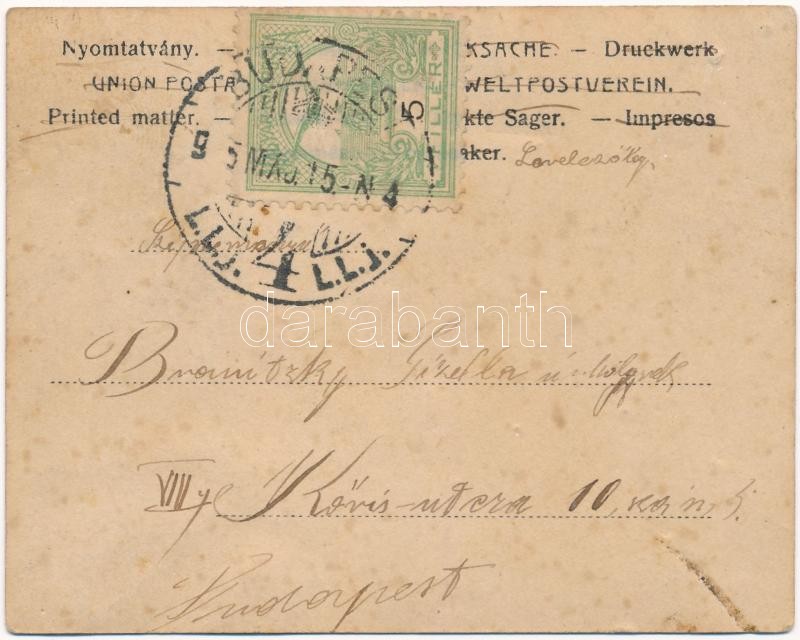 Nyomtatvány. — KSACHE. — Druckwerk
UNION POSTA WELTPOSTVEREIN.
Printed matter. — kte Sager. — Impresos
aker. Levelezőlap
FILLÉR
5
BUDAPEST
9 MÁJ. 15.-N 4
4
L.L.J. L.L.J.
darabanth
Branitzky Gizella úrhölgynek
VIII Kőris-utcza 10,
Budapest